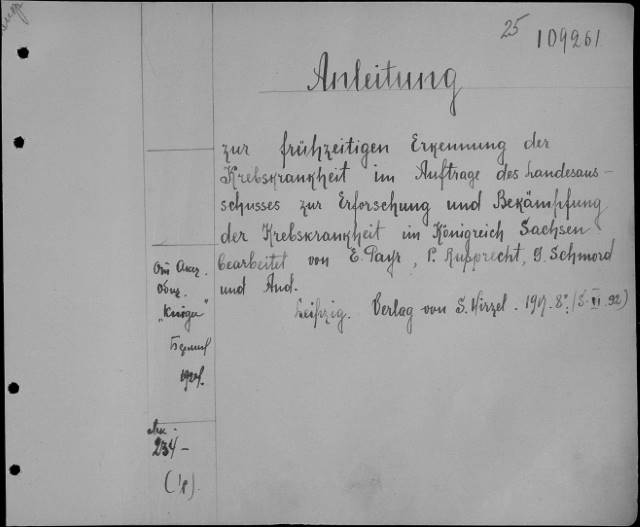 25 109261
Anleitung
zur frühzeitigen Erkennung der
Krebskrankheit im Auftrage des Landesaus-
schusses zur Erforschung und Bekämpfung
der Krebskrankheit in Königreich Sachsen
bearbeitet von E. Payr, P. Rupprecht, G. Schmord
und And.
Leipzig. Verlag von S. Hirzel. 191 8°; VI 92)
"Книга"
234-